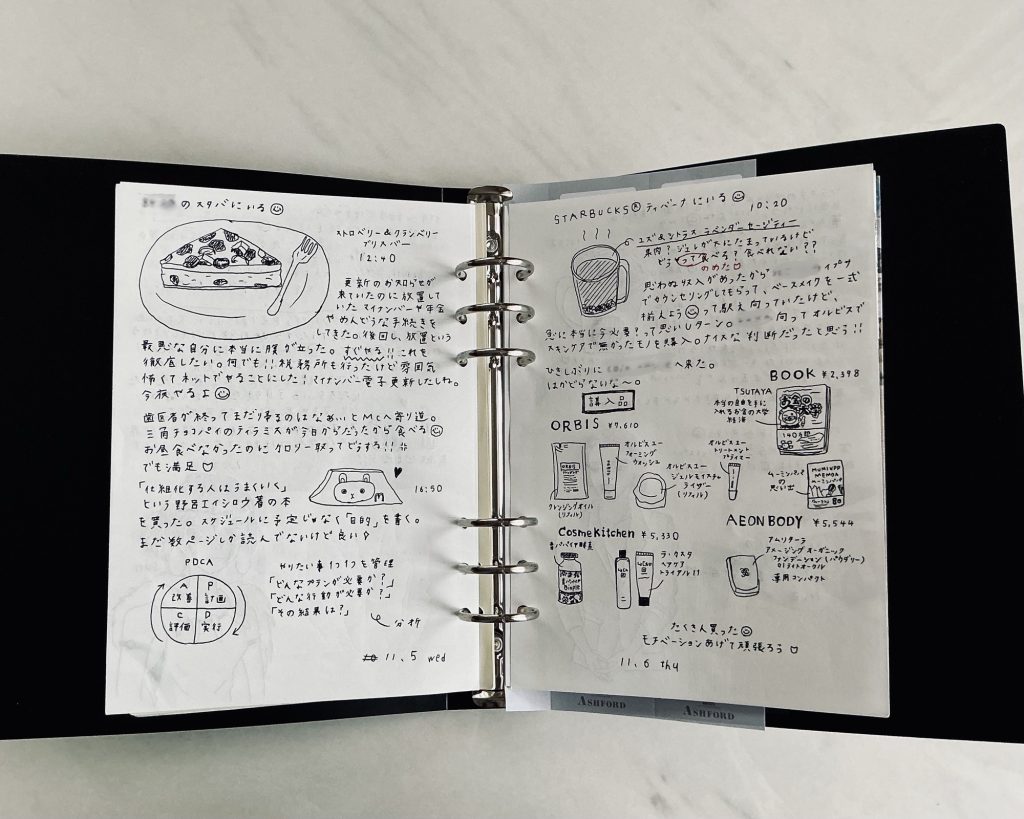 のスタバにいる
ストロベリー&クランベリー
ブリスバー
12:40
更新のお知らせが
来ていたのに放置して
いたマイナンバーや年金
やめんどうな手続きを
してきた。後回し、放置という
最悪な自分に本当に腹が立った。すぐやる!!これを
徹底したい。何でも!!税務所も行ったけど雰囲気
怖くてネットでやることにした!マイナンバー電子更新したしね。
今夜やるよ
歯医者が終ってまだ帰るのはなぁ…とMcへ寄り道。
三角チョコパイのティラミスが今日からだったから食べる
お昼食べなかったのにカロリー取ってどうする!!
でも満足
16:50
「仕組化する人はうまくいく」
という野呂エイシロウ著の本
を買った。スケジュールに予定じゃなく「目的」を書く。
まだ数ページしか読んでないけど良い!
PDCA
A 改善
P 計画
C 評価
D 実行
やりたい事1つ1つを管理
「どんなプランが必要か?」
「どんな行動が必要か?」
「その結果は?」
分析
11、5 wed
STARBUCKS® ティバーナにいる 10:20
ユズ&シトラス ラベンダーセージティー
果肉?ジュレが大にたまっているけど
どうやって食べる?食べれない??
のめた
思わぬ収入があったから イプサ
でカウンセリングしてもらって、ベースメイクを一式
揃えよう って駅え向っていたけど、
急に本当に今必要?って思いUターン。 向ってオルビスで
スキンケアで無かったモノを購入。ナイスな判断だったと思う!!
ひさしぶりに へ来た。
はかどらないな〜。
購入品
BOOK ¥2,398
TSUTAYA
本当の自由を手に
入れるお金の大学
経済
お金の
大学
140万部
ムーミンパパの
思い出
ORBIS ¥7,610
ORBIS
クレンジングオイル
(リフィル)
オルビスユー
フォーミング
ウォッシュ
オルビスユー
ジェルモイスチャ
ライザー
(リフィル)
オルビスユー
トリートメント
プライマー
CosmeKitchen ¥5,330
青パパイヤ酵素
ラ・カスタ
ヘアケア
トライアル!!
AEONBODY ¥5,544
アムリターラ
アメージング オーガニック
ファンデーション(パウダリー)
01ライトオークル
専用コンパクト
たくさん買った
モチベーションあげて頑張ろう
11、6 thu
ASHFORD
ASHFORD